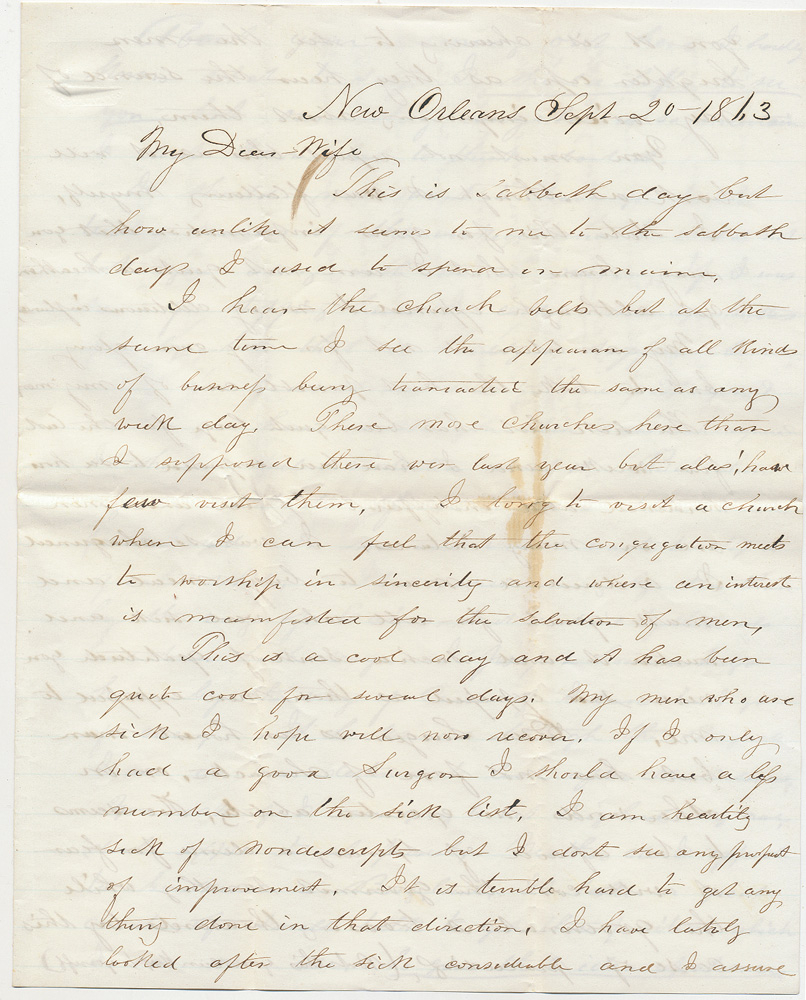 New Orleans Sept 20 - 1863
My Dear Wife
This is Sabbath day but
how unlike it seems to me to the sabbath
days I used to spend in maine,
I hear the church bells but at the
same time I see the appearanc of all kinds
of business being transacted the same as any
week day. There more churches here than
I supposed there wer last year but alas! how
few visit them, I long to visit a church
where I can feel that the congregation meets
to worship in sincerity and where an interest
is manifested for the salvation of men,
This is a cool day and it has been
quit cool for several days. My men who are
sick I hope will now recover. If I only
had a good Surgeon I should have a less
number on the sick list, I am heartily
sick of nondescripts but I dont see any prospect
of improvement. It is terrible hard to get any
thing done in that direction, I have lately
looked after the sick considerable and I assure